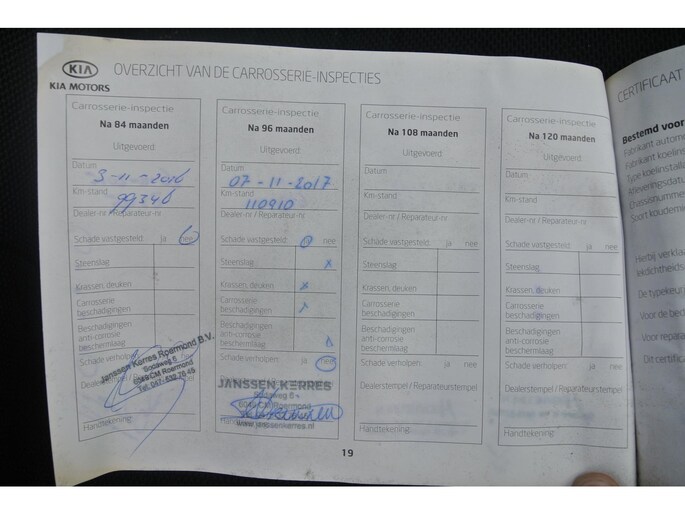 KIA
KIA MOTORS
OVERZICHT VAN DE CARROSSERIE-INSPECTIES
Carrosserie-inspectie
Na 84 maanden
Uitgevoerd:
Datum
3-11-2016
Km-stand
99346
Dealer-nr / Reparateur-nr
Schade vastgesteld: ja nee
Steenslag
Krassen, deuken
Carrosserie
beschadigingen
Beschadigingen
anti-corrosie
beschermlaag
Schade verholpen: ja nee
Janssen Kerres Roermond B.V.
6049 CM Roermond
Handtekening:
Carrosserie-inspectie
Na 96 maanden
Uitgevoerd:
Datum
07-11-2017
Km-stand
110910
Dealer-nr / Reparateur-nr
Schade vastgesteld: ja nee
Steenslag x
Krassen, deuken x
Carrosserie
beschadigingen
Beschadigingen
anti-corrosie
beschermlaag
Schade verholpen: ja nee
JANSSEN KERRES
6049 CM Roermond
www.janssenkerres.nl
Handtekening:
Carrosserie-inspectie
Na 108 maanden
Uitgevoerd:
Datum
Km-stand
Dealer-nr / Reparateur-nr
Schade vastgesteld: ja nee
Steenslag
Krassen, deuken
Carrosserie
beschadigingen
Beschadigingen
anti-corrosie
beschermlaag
Schade verholpen: ja nee
Dealerstempel / Reparateurstempel
Handtekening:
Carrosserie-inspectie
Na 120 maanden
Uitgevoerd:
Datum
Km-stand
Dealer-nr / Reparateur-nr
Schade vastgesteld: ja nee
Steenslag
Krassen, deuken
Carrosserie
beschadigingen
Beschadigingen
anti-corrosie
beschermlaag
Schade verholpen: ja nee
Dealerstempel / Reparateurstempel
Handtekening:
19
CERTIFICAAT
Bestemd voor
Fabrikant
Fabrikant
Type
Hierbij
De
Voor
Dit